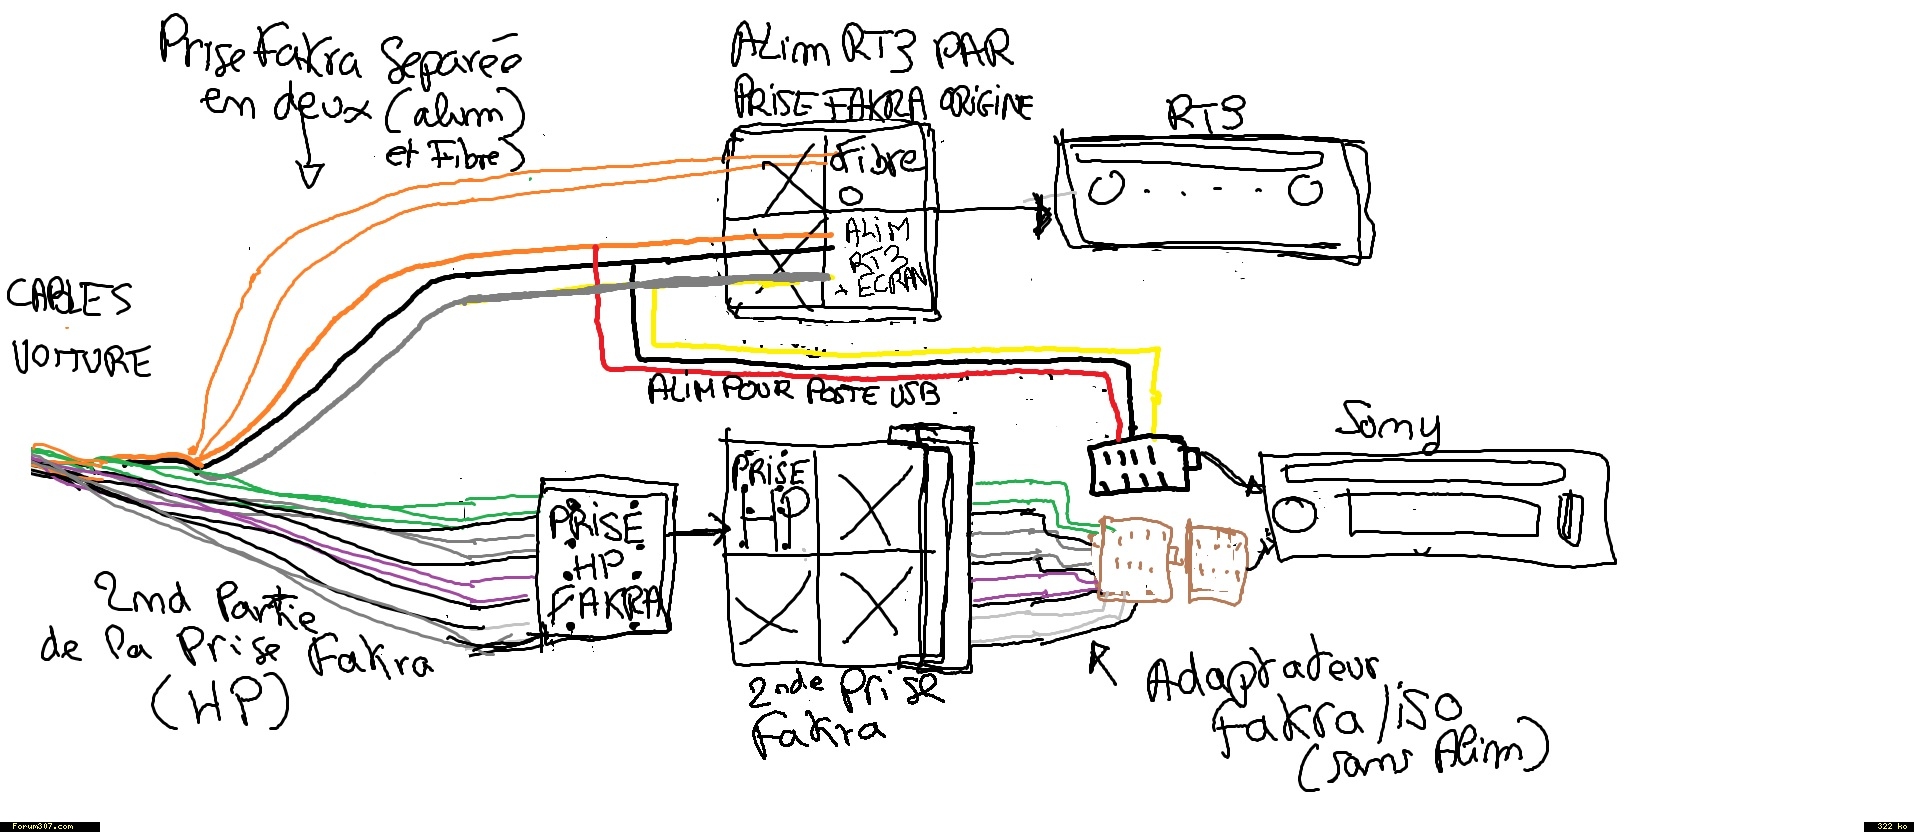 Prise Fakra Separée
en deux (alim)
et Fibre)
ALim RT3 PAR
PRISE FAKRA ORIGINE
RT3
Fibre
O
ALiM
RT3
+ ECRAN
CABLES
VOITURE
ALIM POUR POSTE USB
Sony
PRISE
HP
FAKRA
PRISE
HP
2nd Partie
de la Prise Fakra
(HP)
2nde Prise
Fakra
Adaptateur
Fakra/iSO
(sans Alim)
Forum307.com
322 ko